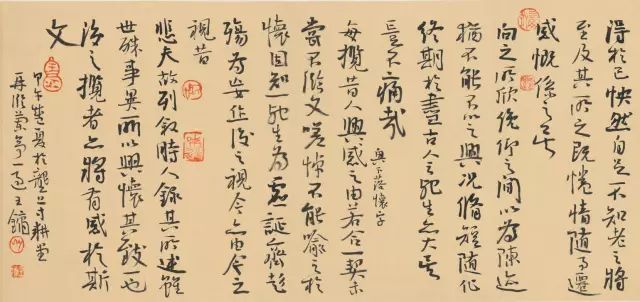 得於己怏然自足不知老之將
至及其所之既惓情隨事遷
感慨係之矣
向之所欣俛仰之間以爲陳迹
猶不能不以之興況脩短隨化
終期於盡古人云死生亦大矣
豈不痛哉
興下落懷字
每攬昔人興感之由若合一契未
嘗不臨文嗟悼不能喻之於
懷固知一死生爲虛誕齊彭
殤爲妄作後之視今亦由今之
視昔
悲夫故列敘時人錄其所述雖
世殊事異所以興懷其致一也
後之攬者亦將有感於斯
文
甲午夏於寸耕堂
再臨蘭亭王鏞